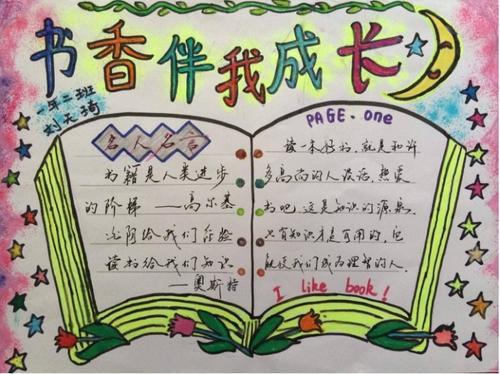 书香伴我成长
一年二班
刘天琦
名人名言
书籍是人类进步
的阶梯——高尔基
光阴给我们经验
读书给我们知识
——奥斯特
PAGE·one
读一本好书,就是和许
多高尚的人谈话,热爱
书吧,这是知识的源泉,
只有知识才是可用的,它
能使我们成为理智的人.
I like book!